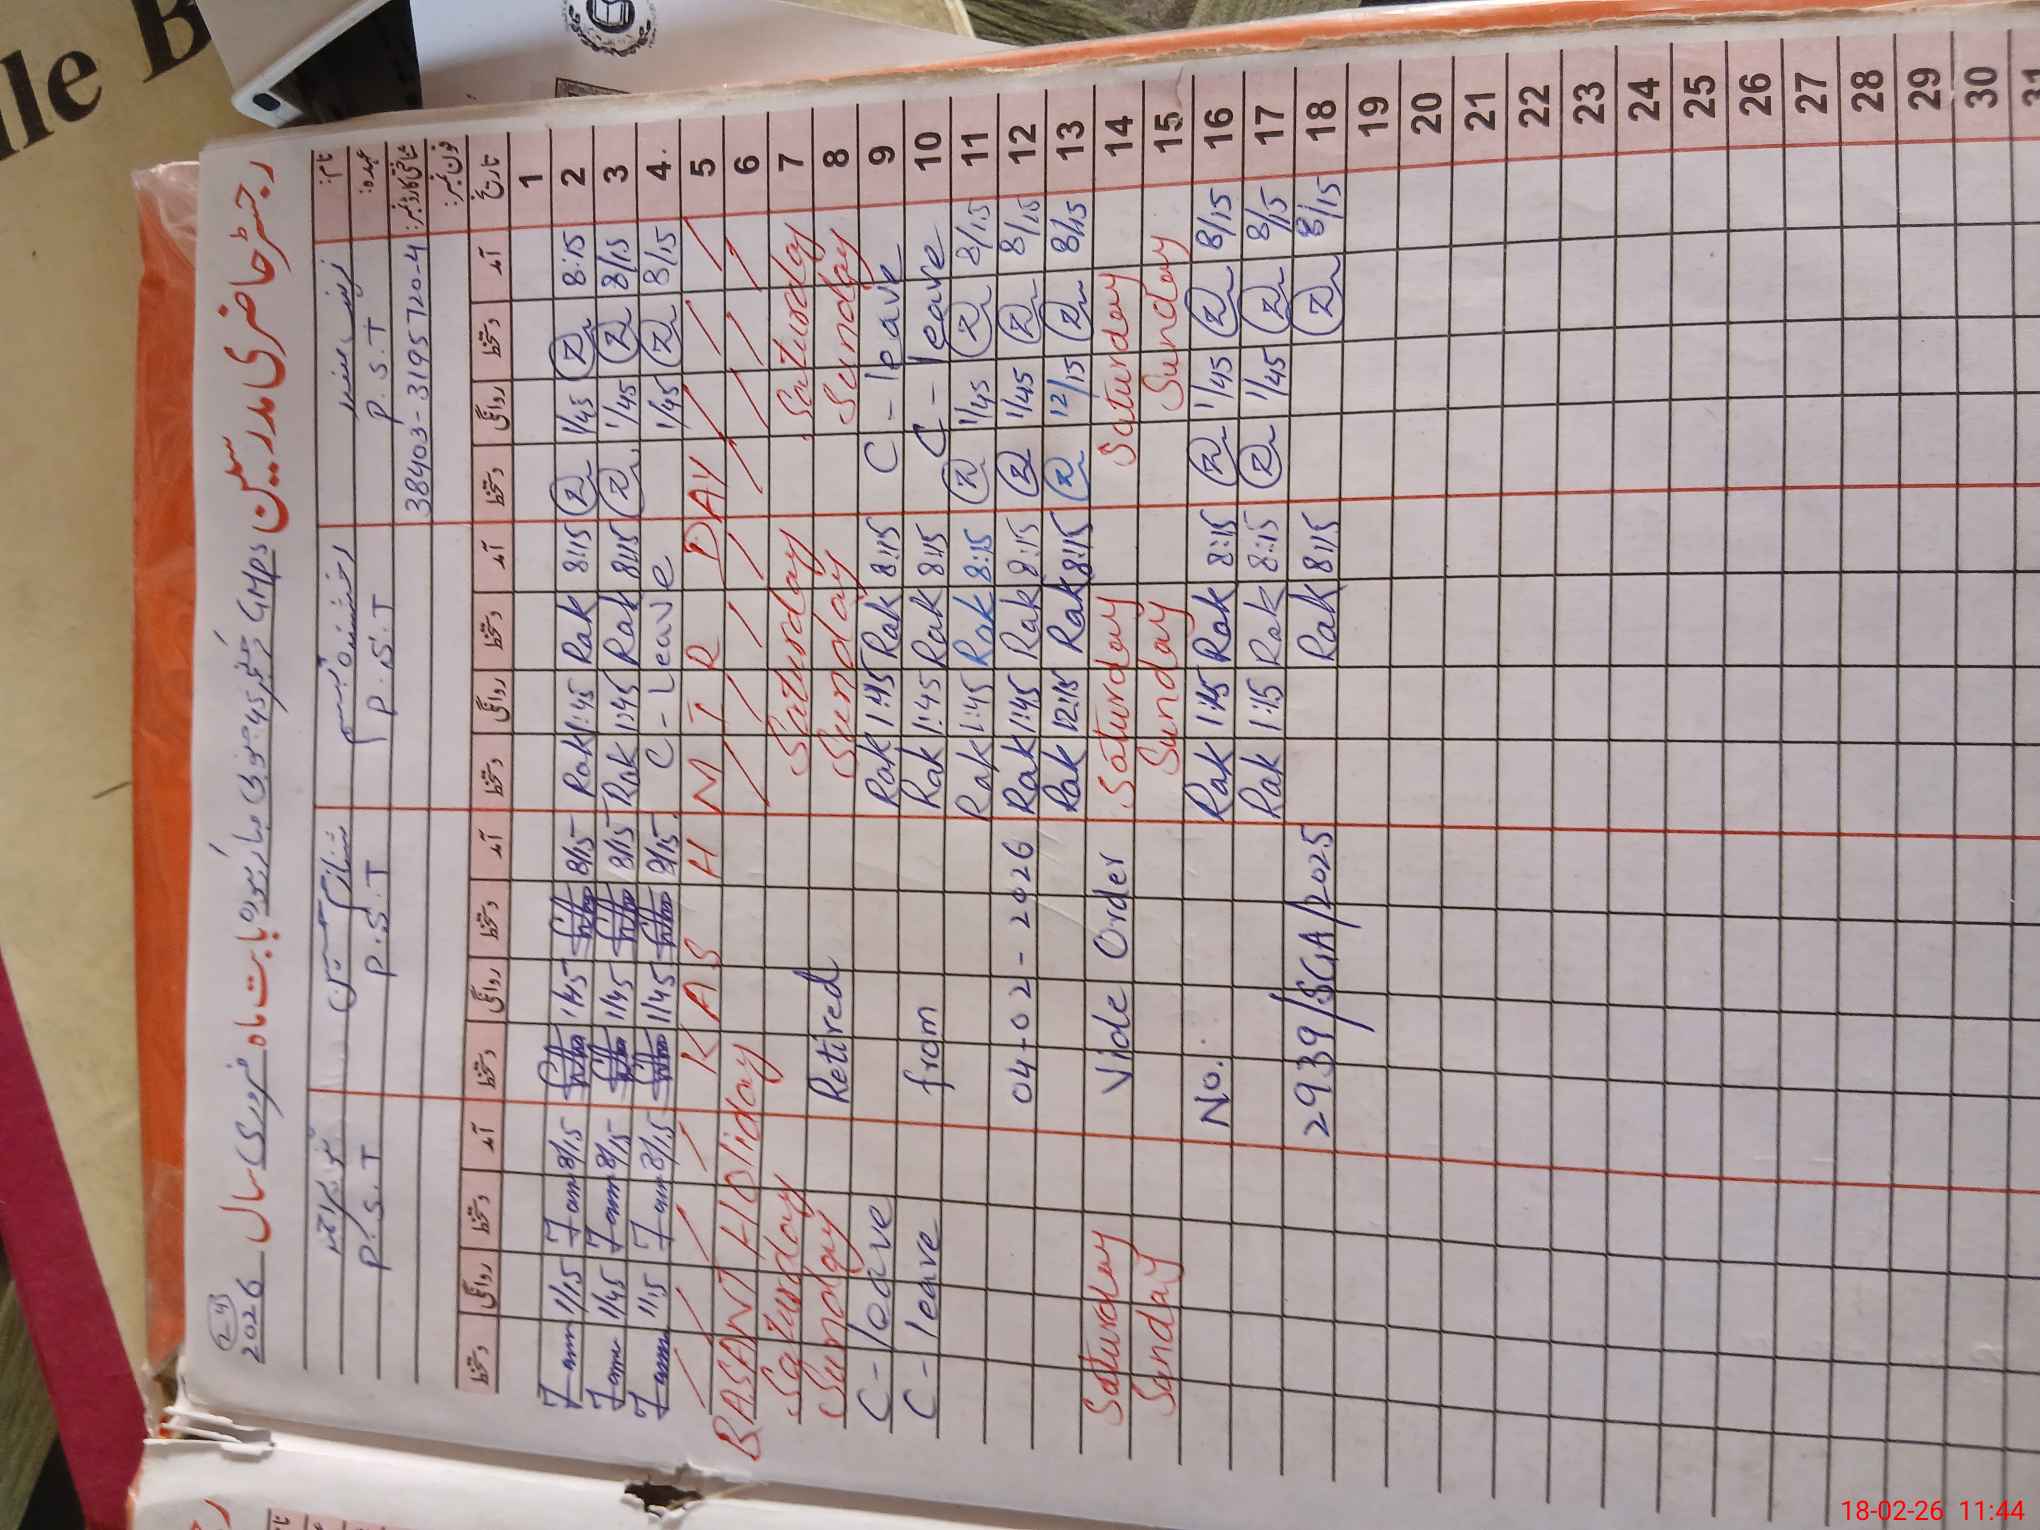 رجسٹر حاضری مدرسین GMPS چک نمبر 45 جنوبی سرگودھا بابت ماہ فروری سال 2026
نام:
عہدہ: P.S.T P.S.T P.S.T P.S.T
شناختی کارڈ نمبر: 38403-3195720-4
فون نمبر:
تاریخ آمد دستخط روانگی دستخط آمد دستخط روانگی دستخط آمد دستخط روانگی دستخط آمد دستخط روانگی دستخط
1
2 8:15 1/45 8:15 Rak 1:45 Rak 8/15 1/45 8/15 1/15
3 8/15 1/45 8:15 Rak 1:45 Rak 8/15 1/45 8/15 1/45
4 8/15 1/45 C-Leave 8/15 1/45 8/15 1/15
5 KASHMIR DAY
6 BASANT HOliday
7 Saturday Saturday Saturday
8 Sunday Sunday Retired Sunday
9 C-leave 8:15 Rak 1:45 Rak C-leave
10 C-leave 8:15 Rak 1:45 Rak from C-leave
11 8/15 1/45 8:15 Rak 1:45 Rak
12 8/15 1/45 8:15 Rak 1:45 Rak 04-02-2026
13 8/15 12/15 8:15 Rak 12:15 Rak
14 Saturday Saturday Vide Order Saturday
15 Sunday Sunday Sunday
16 8/15 1/45 8:15 Rak 1:45 Rak No.
17 8/15 1/45 8:15 Rak 1:15 Rak
18 8/15 8:15 Rak 2939/SGA/2025
19
20
21
22
23
24
25
26
27
28
29
30
31
18-02-26 11:44